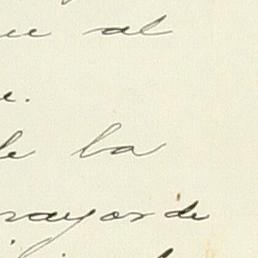 ue al
e.
de la
mayor de